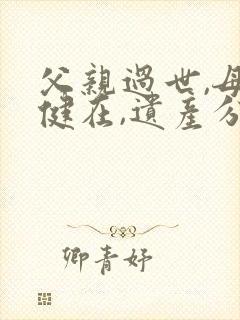 父親過世,母
健在,遺產分
卿青妤